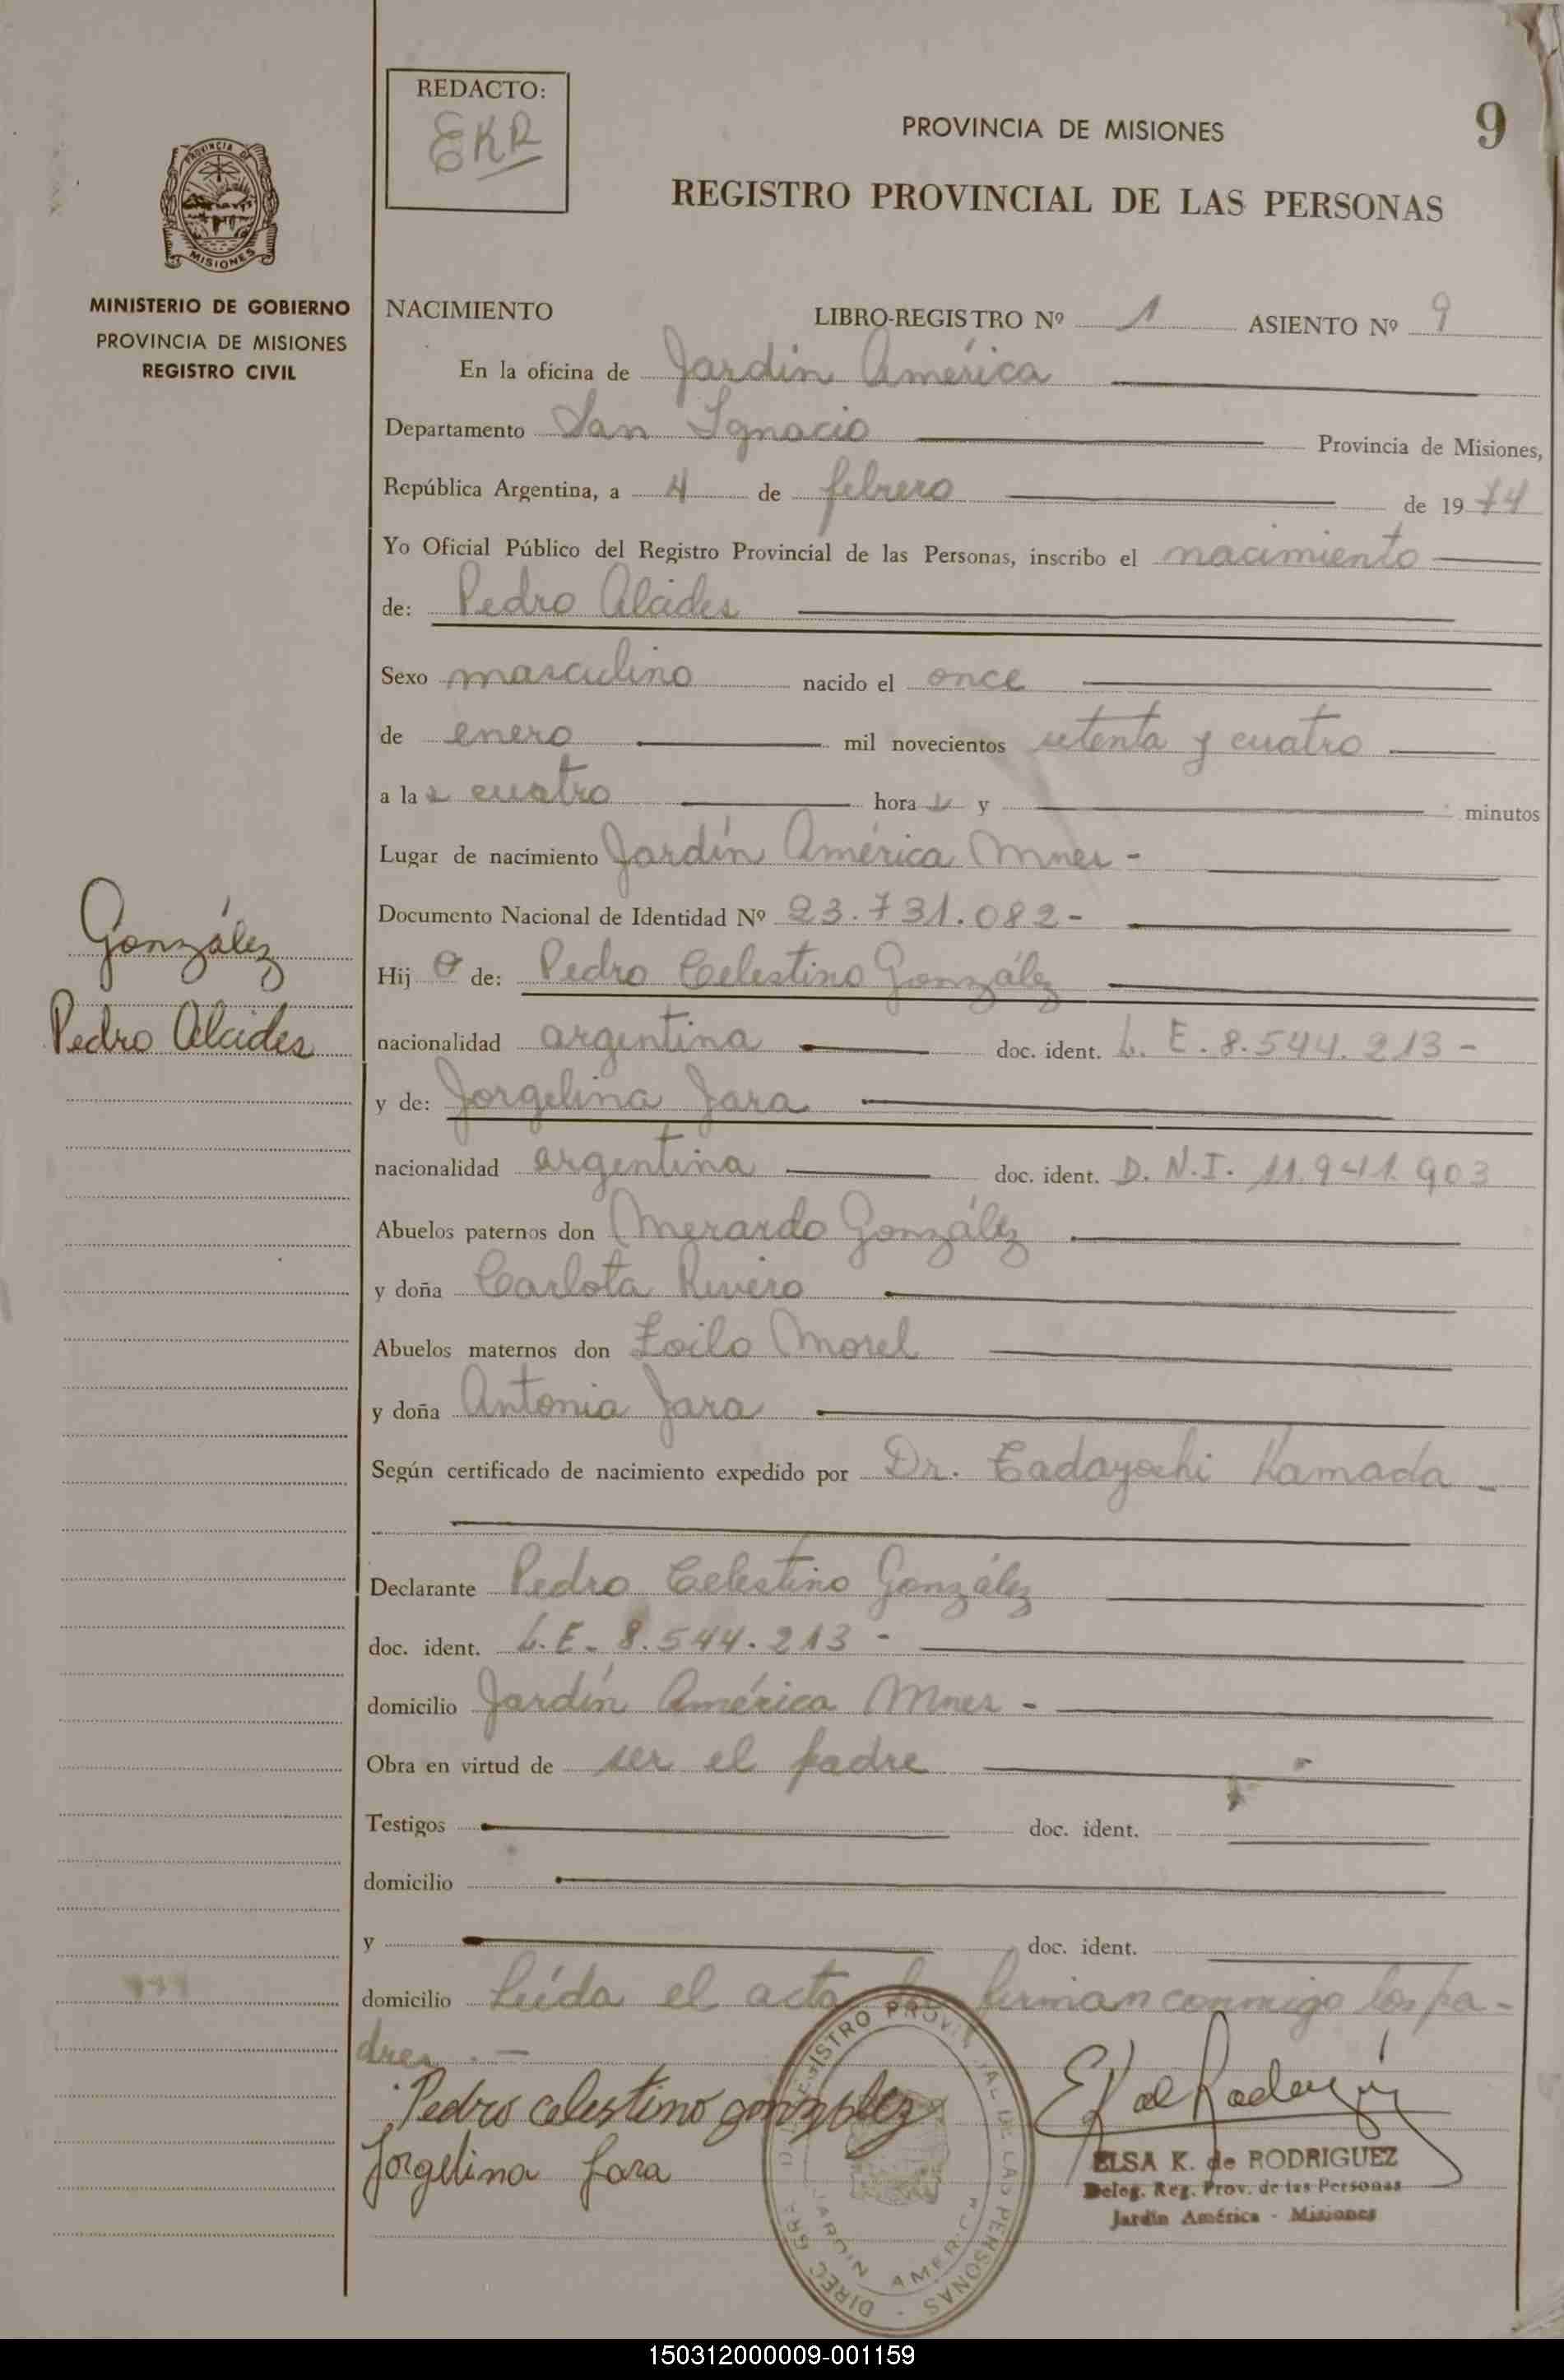 REDACTO:
EKR
PROVINCIA DE MISIONES
9
REGISTRO PROVINCIAL DE LAS PERSONAS
PROVINCIA DE
MISIONES
MINISTERIO DE GOBIERNO
PROVINCIA DE MISIONES
REGISTRO CIVIL
NACIMIENTO LIBRO-REGISTRO Nº 1 ASIENTO Nº 9
En la oficina de Jardín América
Departamento San Ignacio Provincia de Misiones,
República Argentina, a 4 de febrero de 1974
Yo Oficial Público del Registro Provincial de las Personas, inscribo el nacimiento
de: Pedro Alcides
Sexo masculino nacido el once
de enero mil novecientos setenta y cuatro
a las cuatro horas y minutos
Lugar de nacimiento Jardín América Mnes -
Documento Nacional de Identidad Nº 23.731.082-
González
Hijo de: Pedro Celestino González
Pedro Alcides
nacionalidad argentina doc. ident. L. E. 8.544.213 -
y de: Jorgelina Jara
nacionalidad argentina doc. ident. D.N.I. 11.941.903
Abuelos paternos don Merardo González
y doña Carlota Rivero
Abuelos maternos don Zoilo Morel
y doña Antonia Jara
Según certificado de nacimiento expedido por Dr. Tadayoshi Kamada -
Declarante Pedro Celestino González
doc. ident. L.E. 8.544.213 -
domicilio Jardín América Mnes -
Obra en virtud de ser el padre
Testigos doc. ident.
domicilio
y doc. ident.
domicilio Leída el acta la firman conmigo los pa-
dres . -
Pedro celestino gonzalez
Jorgelina Jara
ELSA K. de RODRIGUEZ
Deleg. Reg. Prov. de las Personas
Jardín América - Misiones
JARDIN AMERICA
150312000009-001159